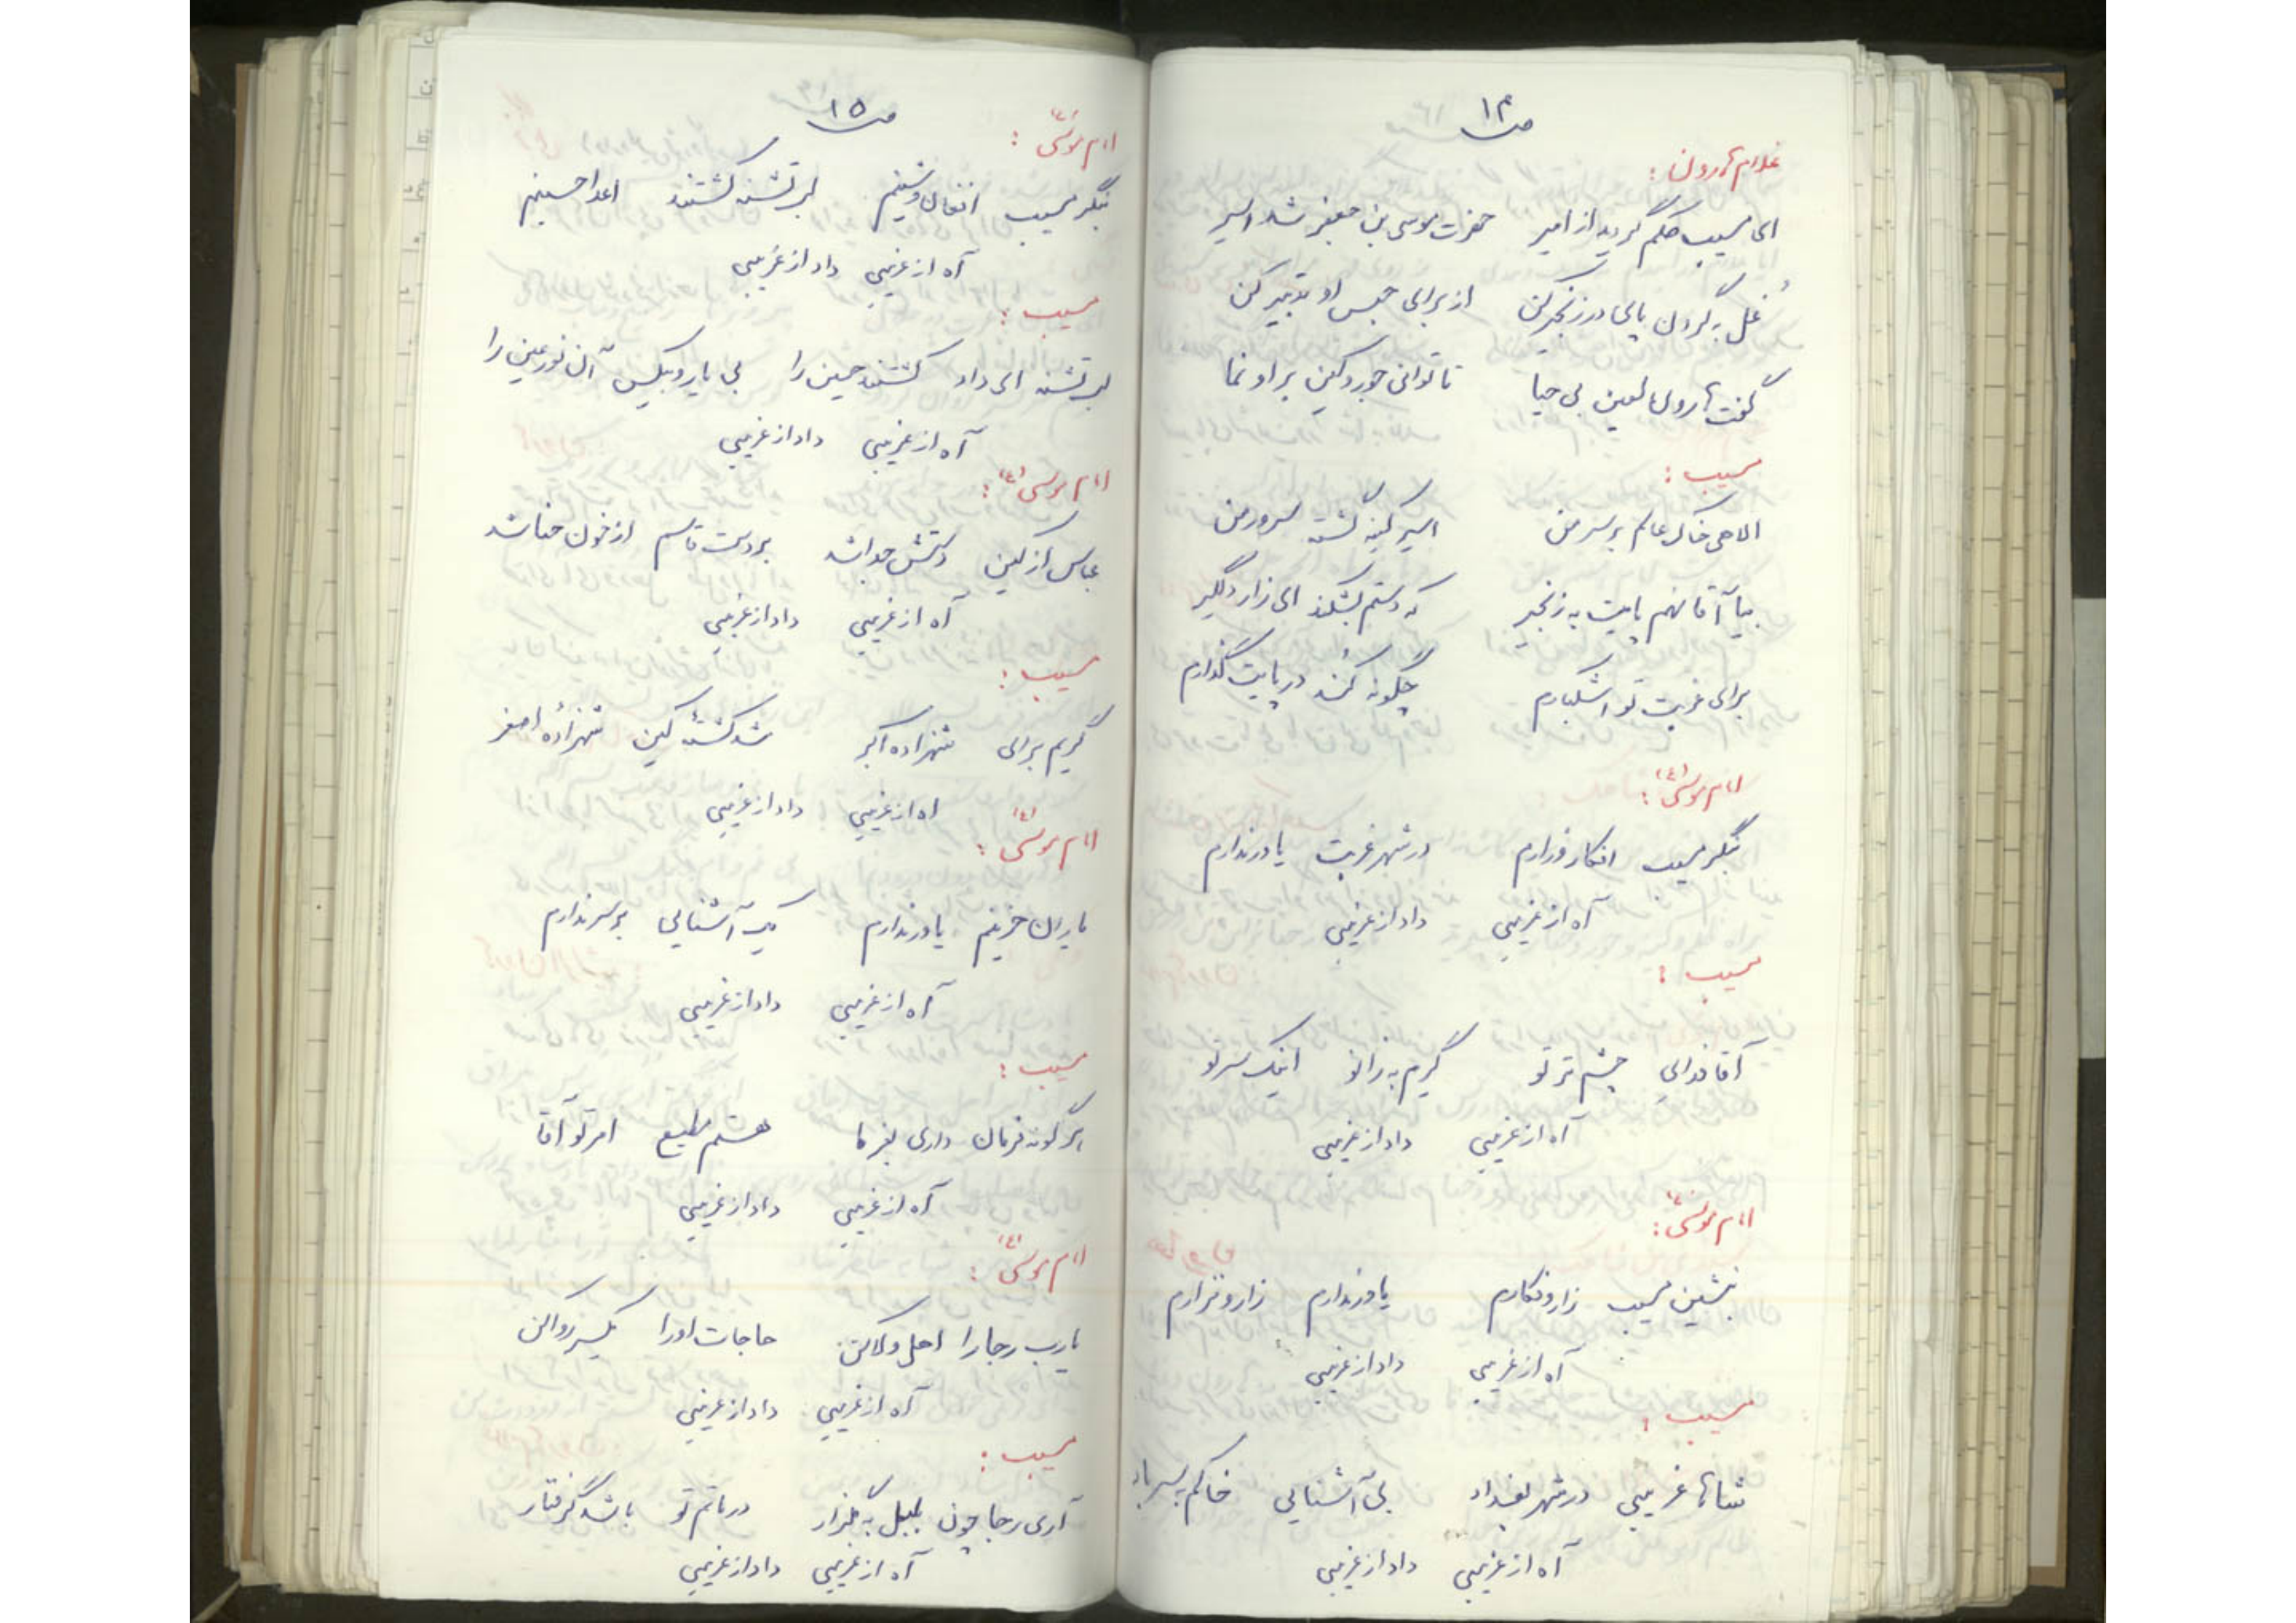 ص ۱۴
غلام هارون :
ای مسیب حکم گردید از امیر حضرت موسی بن جعفر شد اسیر
غُل به گردن پای در زنجیر کن از برای حبس او تدبیر کن
گفت هارون لعین بی حیا تا توانی جور و کین بر او نما
مسیب :
الاهی خاک عالم بر سر من اسیر کینه گشته سرور من
بیا آقا نهم پایت به زنجیر که دستم بشکند ای زار دلگیر
برای غربت تو اشکبارم چگونه کُند در پایت گذارم
امام موسی (ع) :
بنگر مسیب افکار و زارم در شهر غربت یاور ندارم
آه از غریبی داد از غریبی
مسیب :
آقا فدای چشم تر تو گیرم به زانو اینک سر تو
آه از غریبی داد از غریبی
امام موسی (ع) :
بنشین مسیب زار و فکارم یاور ندارم زار و نزارم
آه از غریبی داد از غریبی
مسیب :
شاها غریبی در شهر بغداد بی آشنایی خاکم بسر باد
آه از غریبی داد از غریبی
ص ۱۵
امام موسی (ع) :
بنگر مسیب افغان و شینم لب تشنه کشتند اعدا حسینم
آه از غریبی داد از غریبی
مسیب :
لب تشنه ای داد کشتند حسین را بی یار و بیکس آن نور عین را
آه از غریبی داد از غریبی
امام موسی (ع) :
عباس از کین دستش جدا شد بر دست قاسم از خون حنا شد
آه از غریبی داد از غریبی
مسیب :
گریم برای شهزاده اکبر شد کشتهٔ کین شهزادهٔ اصغر
اه از غریبی داد از غریبی
امام موسی (ع) :
یاران حزینم یاور ندارم یک آشنایی بر سر ندارم
آه از غریبی داد از غریبی
مسیب :
هر گونه فرمان داری بفرما هستم مطیع امر تو آقا
آه از غریبی داد از غریبی
امام موسی (ع) :
یارب رجا را اهل ولا کن حاجات او را یکسر روا کن
آه از غریبی داد از غریبی
مسیب :
آری رجا چون بلبل به گلزار در ماتم تو باشد گرفتار
آه از غریبی داد از غریبی